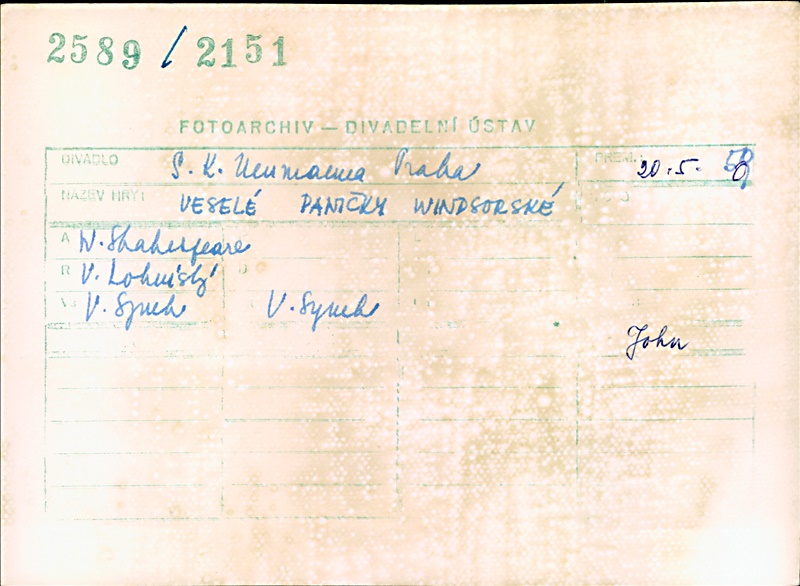 2589 / 2151
FOTOARCHIV — DIVADELNÍ ÚSTAV
DIVADLO S. K. Neumanna Praha PREM. 20.5.
NÁZEV HRY: VESELÉ PANIČKY WINDSORSKÉ
A W. Shakespeare
R V. Lohniský
V. Synek V. Synek
John